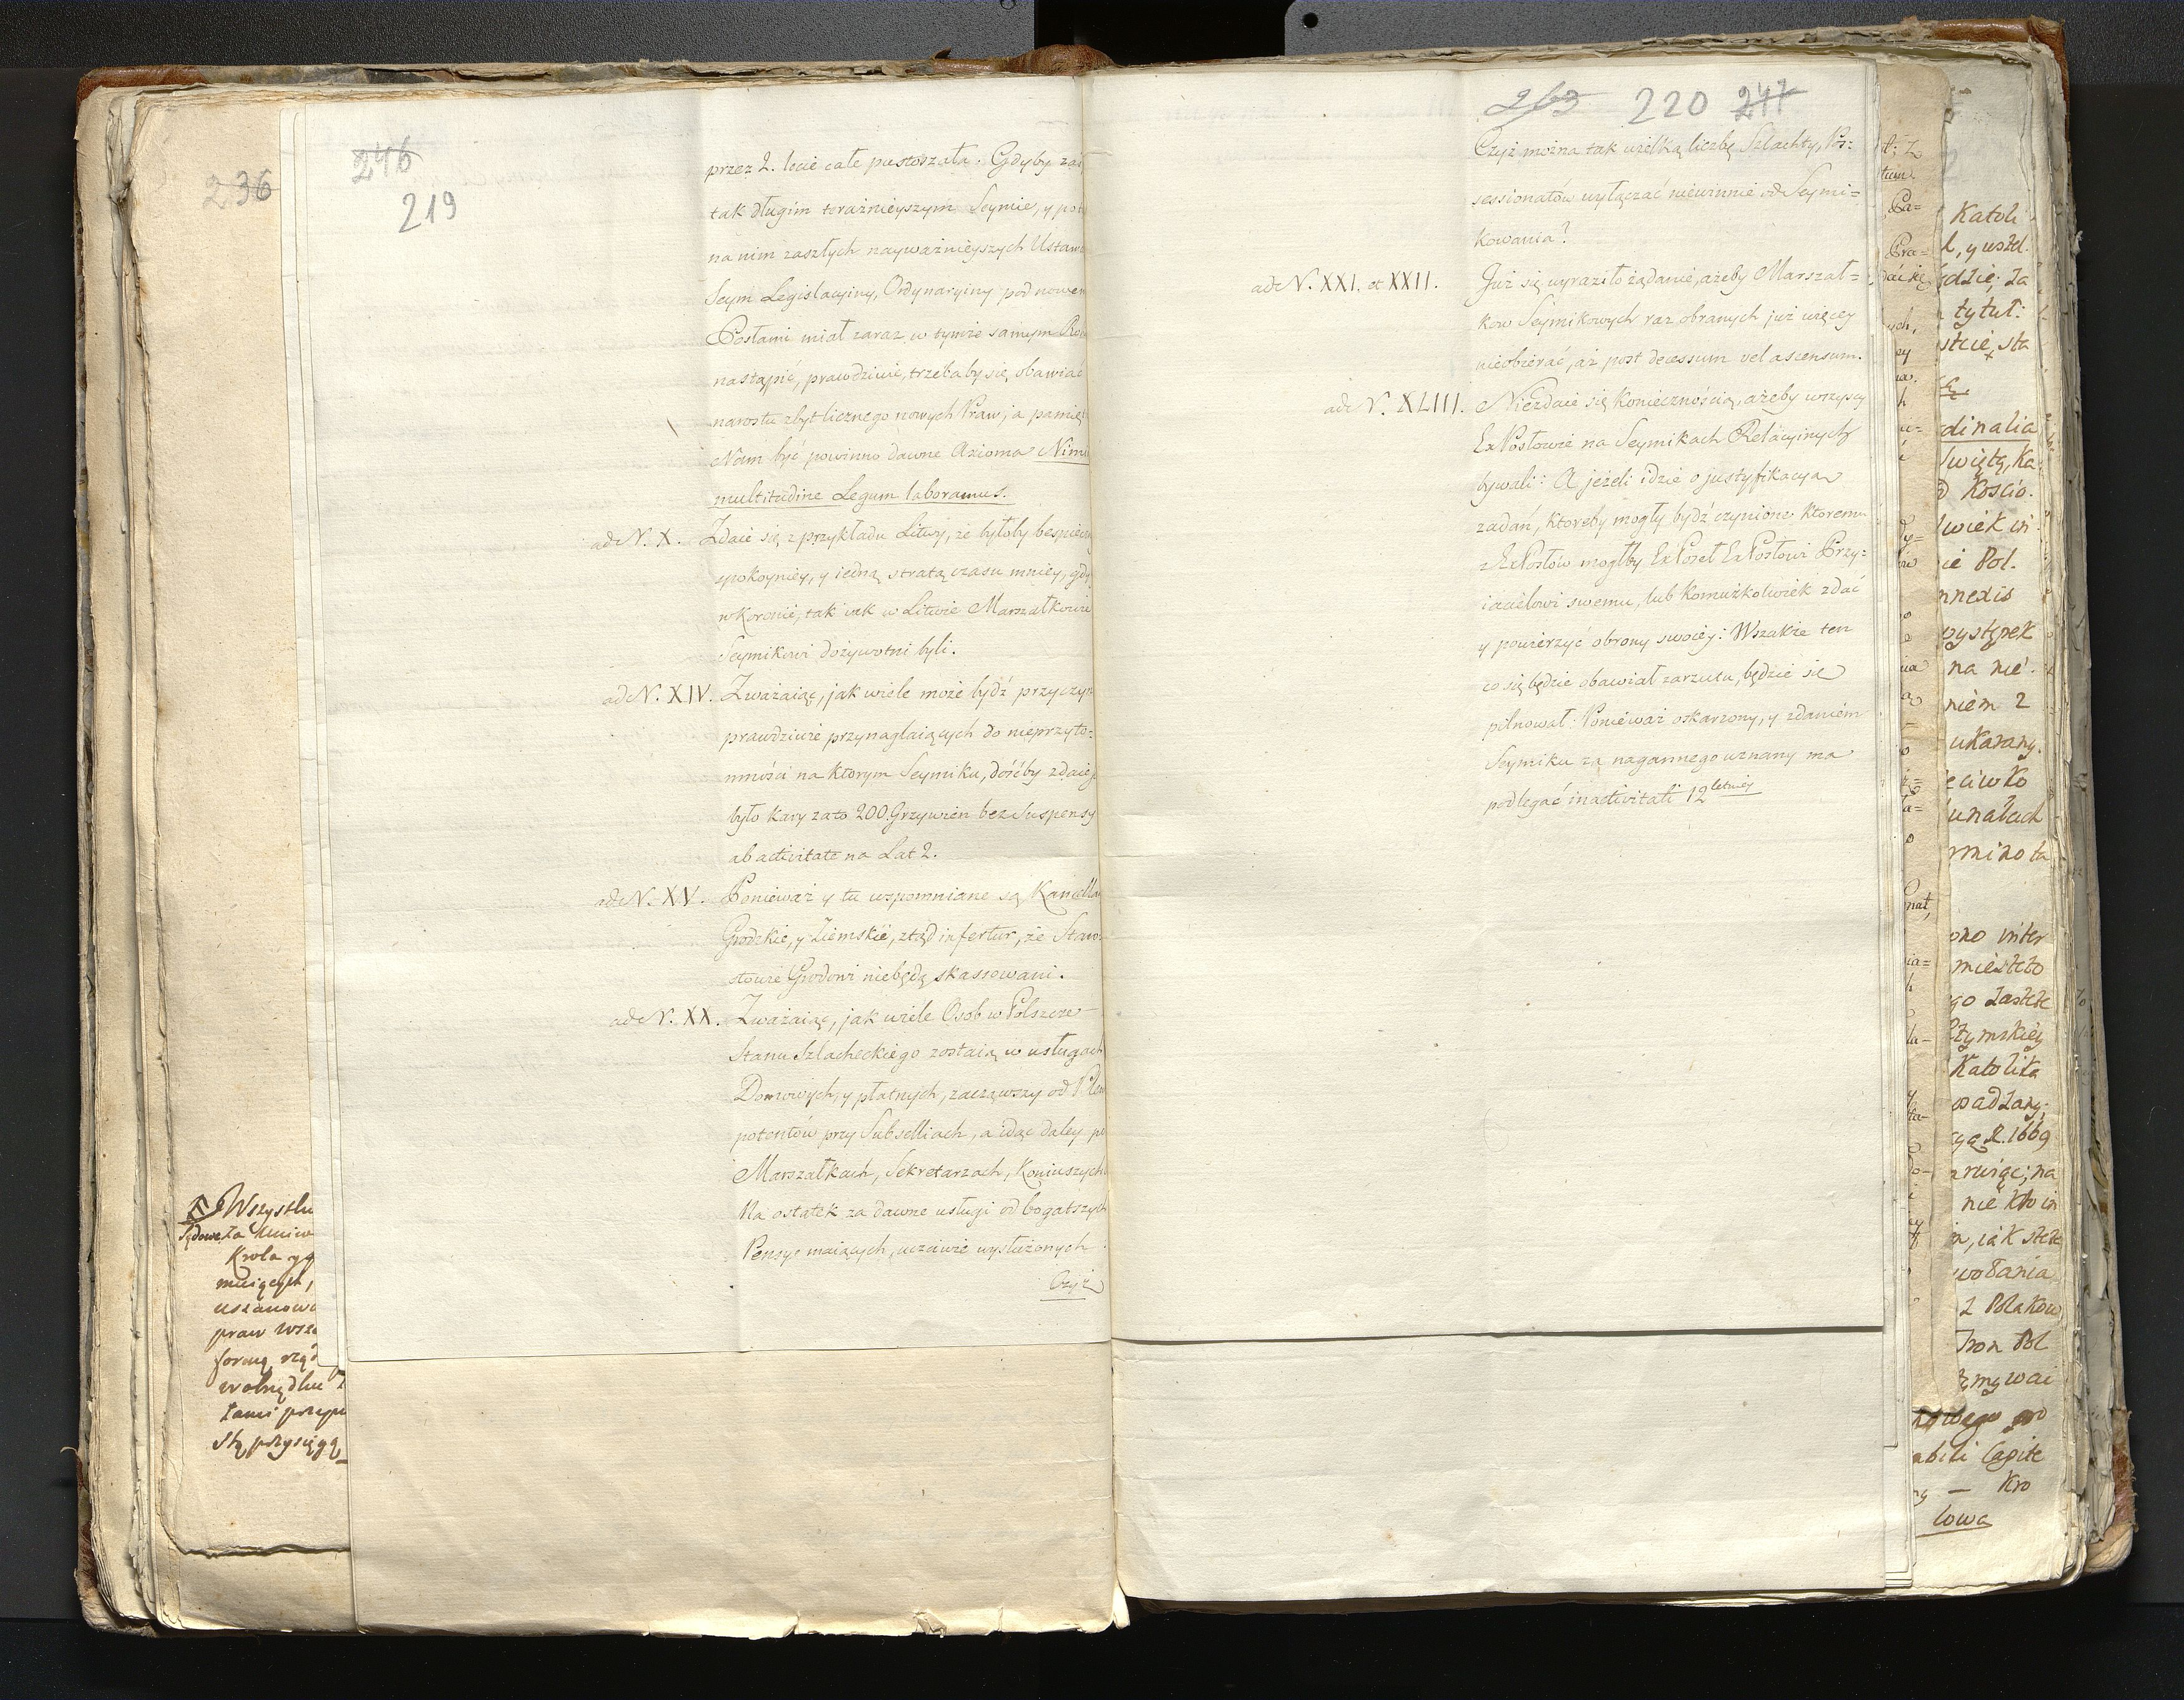 236
246
219
przez 2. lecie całe pustoszała. Gdyby zaś
tak długim teraźnieyszym Seymie, y po
na nim zaszłych nayważnieyszych Ustaw
Seym Legislacyiny, Ordynaryiny pod nowem
Posłami miał zaraz w tymże samym Ro
nastąpić, prawdziwie, trzebaby się obawiać
narostu zbyt licznego nowych Praw; a pamię
Nam być powinno dawne Axioma Nim
multitudine Legum laboramus.
ad N. X. Zdaie się z przykładu Litwy, że byłoby bespiecz
spokoyniey, y iedną stratą czasu mniey, gdy
w Koronie, tak iak w Litwie Marszałkowie
Seymikowi dożywotni byli.
ad N. XIV. Zważaiąc, jak wiele może bydź przyczyn
prawdziwie przynaglaiących do nieprzyto=
mności na ktorym Seymiku, dośćby zdaie
było kary zato 200. Grzywien bez Suspensy
ab activitate na Lat 2.
ad N. XV. Ponieważ y tu wspomniane są Kancella
Grodzkie, y Ziemskie, ztąd infertur, że Staro=
stowie Grodowi niebędą skassowani.
ad N. XX. Zważaiąc, jak wiele Osob w Polszcze
Stanu Szlacheckiego zostaią w usługach
Domowych, y płatnych, zacząwszy od Plen
potentów przy Subselliach, a idąc daley po
Marszałkach, Sekretarzach, Koniuszych
Na ostatek za dawne usługi od bogatszych
Pensye maiących, uczciwie wysłużonych
Czyż
Wszystk
Krola
muiących,
uszanowa
praw wsze
formą rząd
wolną dłu
łami przypu
stą przysięgą
263 220 247
Czyż można tak wielką liczbę Szlachty, Pos=
sessionatów wyłączać niewinnie od Seymi=
kowania?
ad N. XXI. et XXII. Już się wyraziło żądanie, ażeby Marszał=
kow Seymikowych raz obranych już więcey
nieobierać, aż post decessum vel ascensum.
ad N. XLIII. Niezdaie się koniecznością, ażeby wszyscy
Ex Posłowie na Seymikach Relacyinych
bywali: A jeżeli idzie o justyfikacya
zadań, ktoreby mogły bydź czynione ktoremu
z Ex Posłów mogłby Ex Poseł Ex Posłowi Przy=
iacielowi swemu, lub komużkolwiek zdać
y powierzyć obrony swoiey: Wszakże ten
co się będzie obawiał zarzutu, będzie się
pilnował: Ponieważ oskarzony, y zdaniem
Seymiku za nagannego uznany ma
podlegać inactivitati 12 letniey
Katoli
dzie. Za
tytuł:
stcie, sta
dinalia
Swiętą, Ka
Kościo.
lwiek in
ie Pol.
nnexis
ystępek
na nie
niem 2
ukarany.
eciwko
unałach
rmino ta
ono inter
mieśćto
go Zaszłe
zymskiey
Katolika
osadzany;
R. 1669
rwiąc; na
nie kto in
n, iak stete
wołania
z Polakow
Tron Pol
zmywai
abili Capite
Kro
lowa